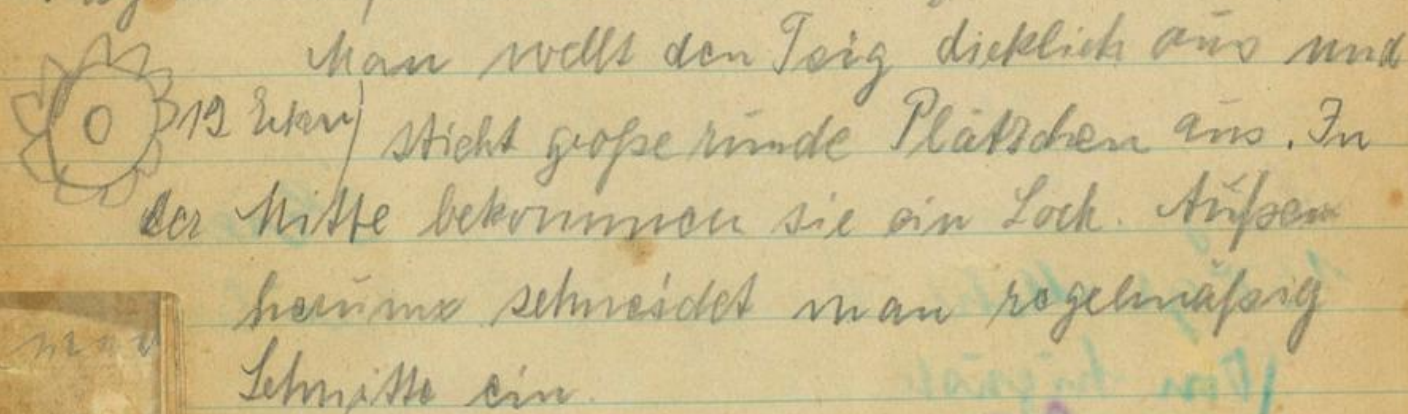 Man wellt den Teig dicklich aus und
12 Ecken) sticht große runde Plätzchen aus. In
der Mitte bekommen sie ein Loch. Außen
herum schneidet man regelmäßig
Schnitte ein.